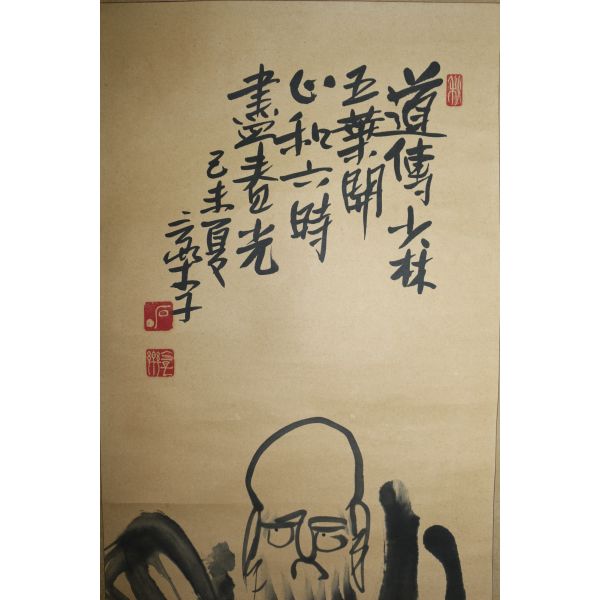 道傳少林
五葉開
心和六時
盡春光
己未夏
三樂子
石